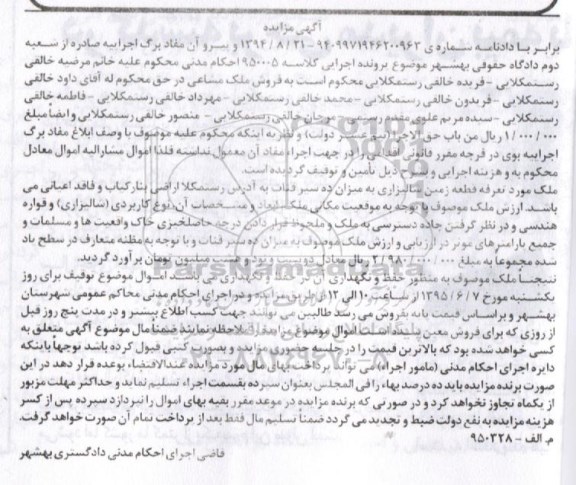 آگهی مزایده
برابر با دادنامه شماره ی 9409971946200963 - 1394/8/21 و پیرو آن مفاد برگ اجراییه صادره از شعبه
دوم دادگاه حقوقی بهشهر موضوع پرونده اجرایی کلاسه 950005 احکام مدنی محکوم علیه خانم مرضیه خالقی
رستمکلایی - فریده خالقی رستمکلایی محکوم است به فروش ملک مشاعی در حق محکوم له آقای داود خالقی
رستمکلایی - فریدون خالقی رستمکلایی - محمد خالقی رستمکلایی - مهرداد خالقی رستمکلایی - فاطمه خالقی
رستمکلایی - سیده مریم علوی رستمی - مرجان خالقی رستمکلایی - منصور خالقی رستمکلایی و ایضاً مبلغ
1/000/000 ریال من باب حق الاجرا (نیم عشر دولت) و نظر به اینکه محکوم علیه موصوف با وصف ابلاغ مفاد برگ
اجراییه بوی در فرجه مقرر قانونی اقدامی را در جهت اجراء مفاد آن معمول نداشته فلذا اموال مشارالیه اموال معادل
محکوم به و هزینه اجرایی و بشرح ذیل تأمین و توقیف گردیده است.
ملک مورد تعرفه قطعه زمین شالیزاری به میزان ده سیر فتات به آدرس رستمکلا اراضی بنارکیاب و فاقد اعیانی می
باشد. ارزش ملک موصوف با توجه به موقعیت مکانی ملک، ابعاد و مشخصات آن، نوع کاربردی (شالیزاری) و قواره
هندسی و در نظر گرفتن جاده دسترسی به ملک و ملحوظ قرار دادن درجه حاصلخیزی خاک واقعیت ها و مسلمات و
جمیع پارامترهای موثر در ارزیابی و ارزش ملک موصوف به میزان ده سیر فتات و با توجه به مظنه متعارف در سطح یاد
شده مجموعاً به مبلغ 2/980/000/000 ریال معادل دویست و نود و هشت میلیون تومان برآورد گردید.
نتیجتاً ملک موصوف به منظور حفظ و نگهداری آن در حفظ و نگهداری می باشد. اموال موضوع توقیف برای روز
یکشنبه مورخ 1395/6/7 از ساعت 10 الی 13 از طریق مزایده و در اجرای احکام مدنی محاکم عمومی شهرستان
بهشهر و براساس قیمت پایه بفروش می رسد طالبین می توانند جهت کسب اطلاع بیشتر و در مدت پنج روز قبل
از روزی که برای فروش معین پانینده است اموال موضوع مزایده را ملاحظه نمایند ضمنا مال موضوع آگهی متعلق به
کسی خواهد شد که بالاترین قیمت را در جلسه حضوری مزایده و بصورت کتبی قبول کرده باشد توجها باینکه
دایره اجرای احکام مدنی (مامور اجراء) می تواند پرداخت بهای مال مورد مزایده عندالاقتضاء بوعده قرار دهد در این
صورت برنده مزایده باید ده درصد بهاء را فی المجلس بعنوان سپرده بقسمت اجراء تسلیم نماید و حداکثر مهلت مزبور
از یکماه تجاوز نخواهد کرد و در صورتی که برنده مزایده در موعد مقرر بقیه بهای اموال را نپردازد سپرده پس از کسر
هزینه مزایده به نفع دولت ضبط و تجدید می گردد ضمناً تسلیم مال فقط بعد از پرداخت تمام آن صورت خواهد گرفت.
م. الف - 950328
قاضی اجرای احکام مدنی دادگستری بهشهر